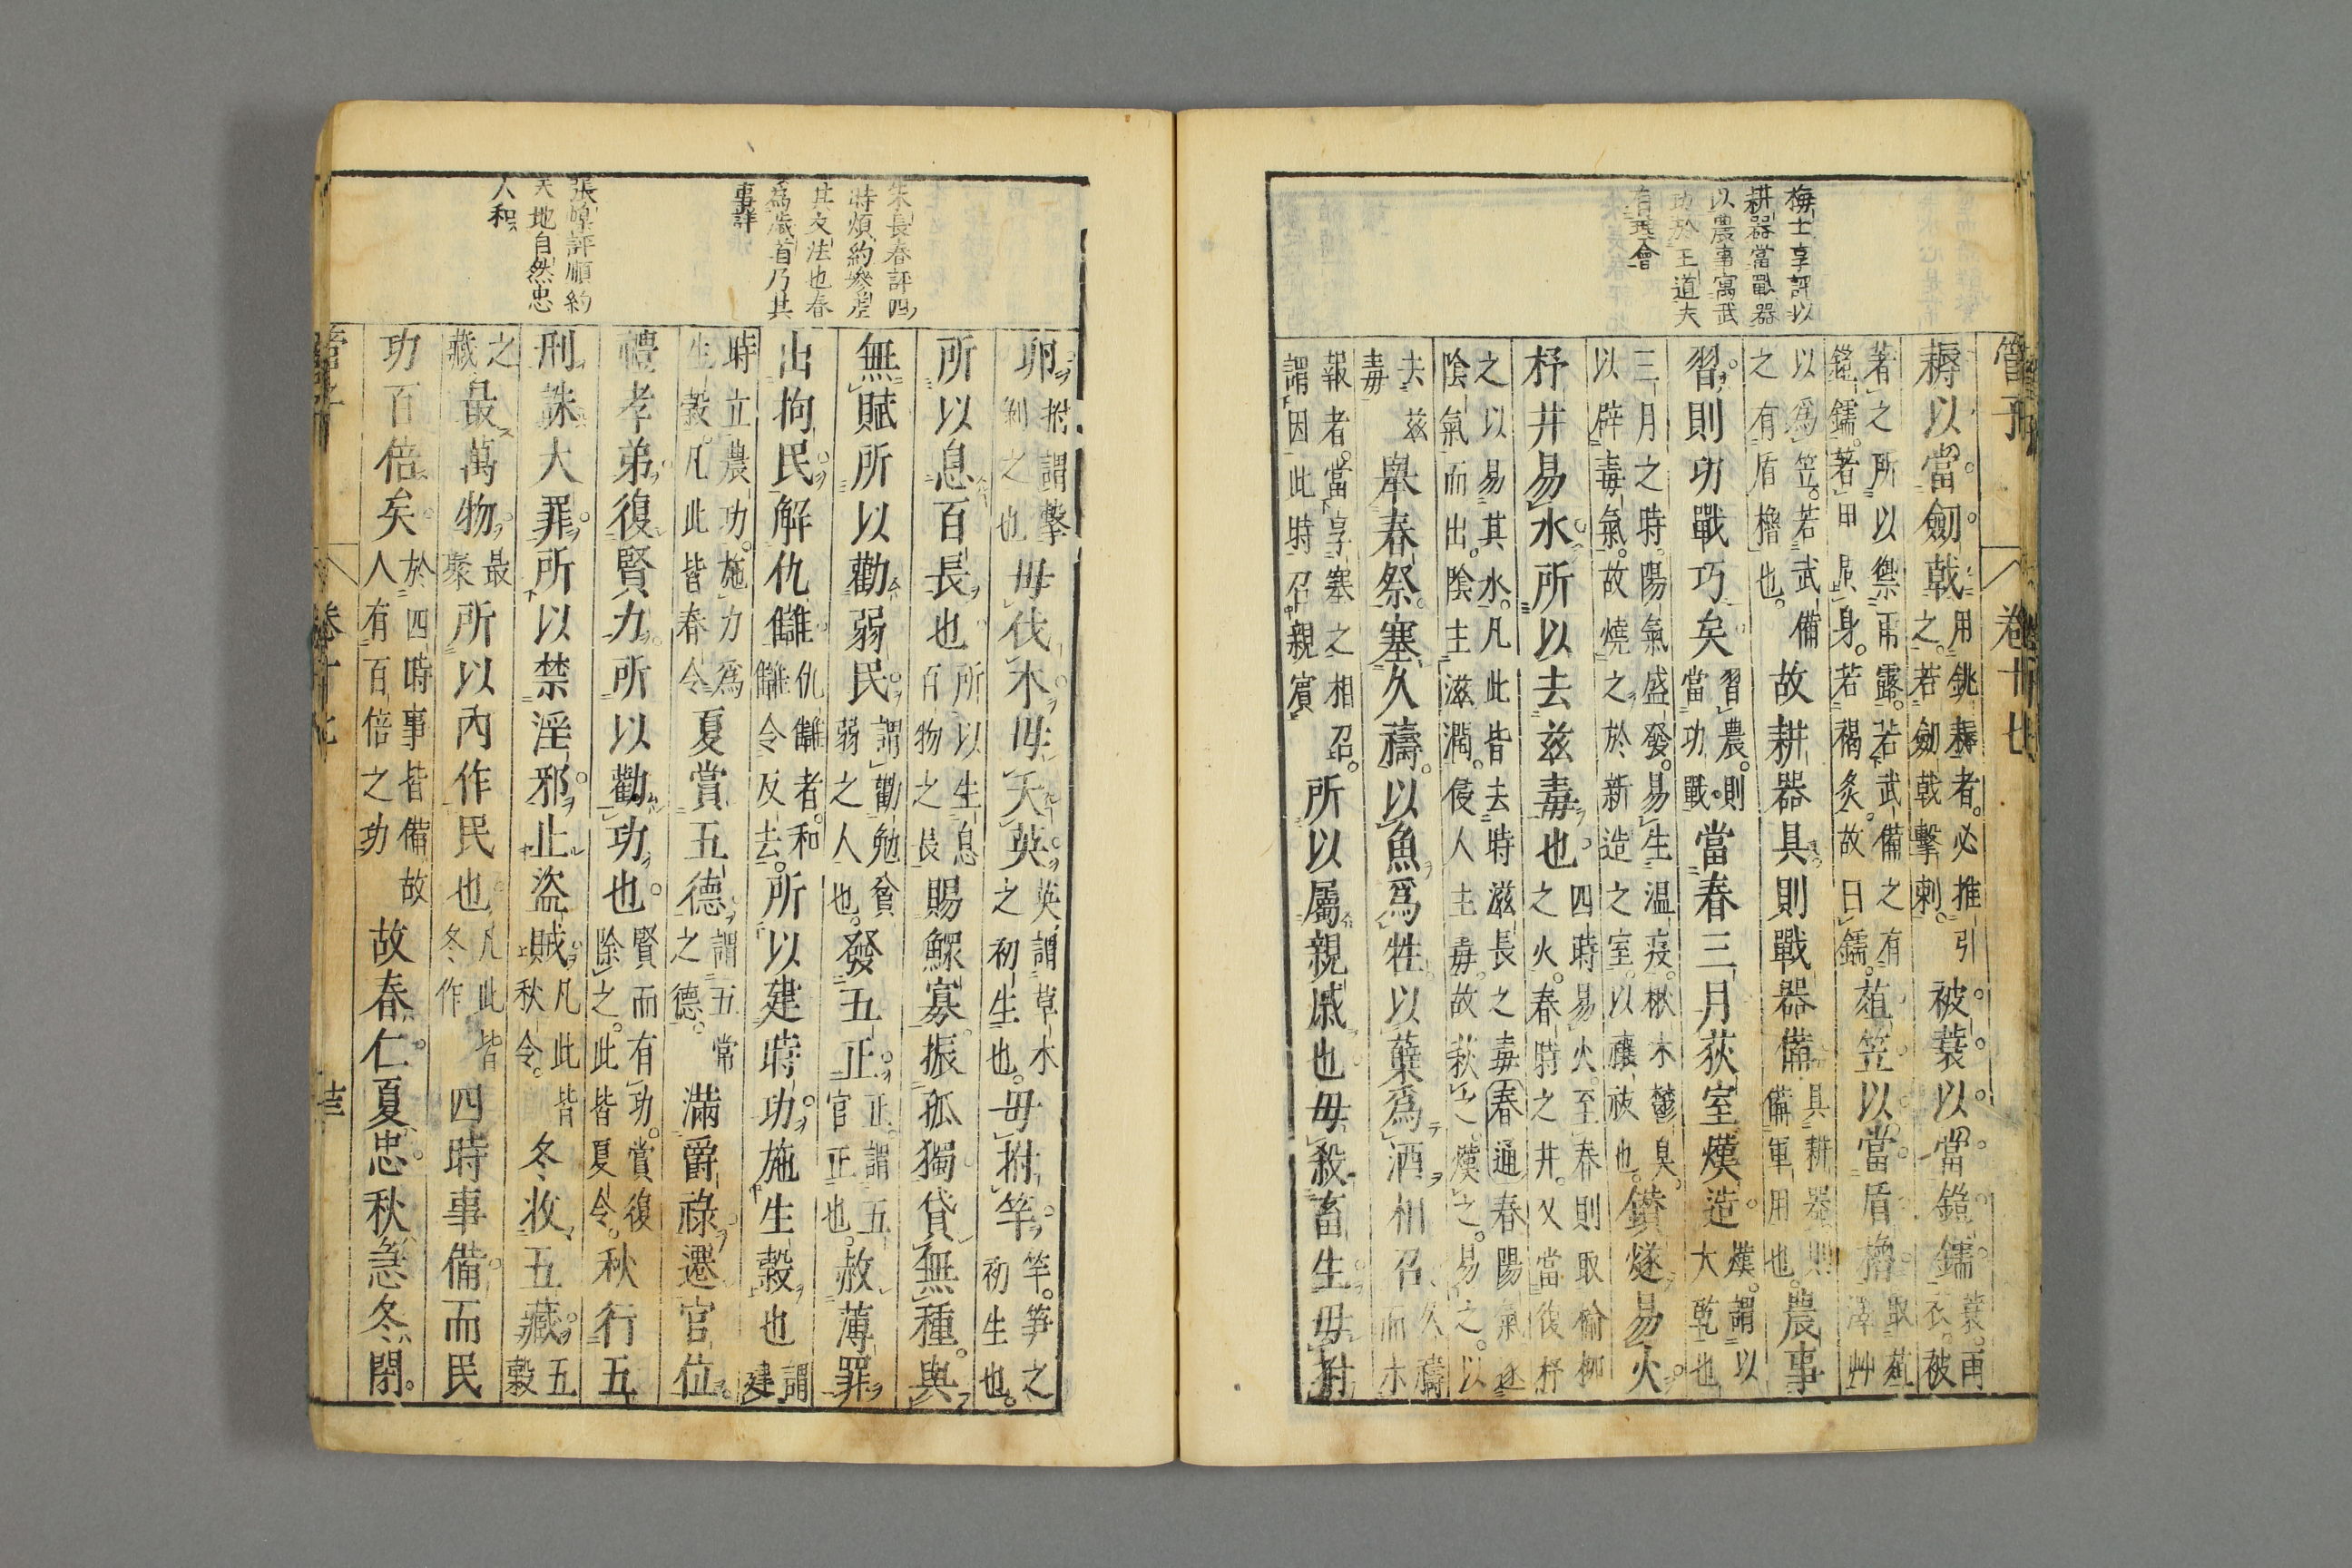 梅士享評以
耕器當戰器
以農事寓武
功於王道大
有理會
管子 卷十七
耨以當劒戟用銚耨者必推引之若劒戟擊刺被蓑以當鎧鑐蓑雨衣被
著之所以禦雨露若武備之有鎧鑐著甲身若褐炙故曰鑐菹笠以當盾櫓取菹澤艸
以爲笠若武備之有盾櫓也故耕器具則戰器備具耕器則備軍用也農事
習則功戰巧矣習農則當功戰當春三月荻室熯造熯謂以大乾也
三月之時陽氣盛發易生温疫楸木鬱臭以辟毒氣故燒之於新造之室以禳祓也鑚燧易火
杼井易水所以去茲毒也四時易火至春則取榆柳之火春時之井又當復杼
之以易其水凡此皆去時滋長之毒春通春陽氣逐陰氣而出陰主滋潤侵人主毒故秋之熯之易之以
去茲毒舉春祭塞久禱以魚爲牲以糵爲酒相召久禱而木
報者當享塞之相召謂因此時召親賓所以屬親戚也毋殺畜生毋拊
朱長春評四
時煩約參差
其文法也春
爲歲首乃其
事詳
張榜評順約
天地自然忠
人和
卵拊謂擊剝之也毋伐木毋夭英英謂草木之初生也毋拊竿竿筍之初生也
所以息百長也所以生息百物之長賜鰥寡振孤獨貸無種與
無賦所以勸弱民謂勸勉貧弱之人也發五正正謂五官正也赦薄罪
出拘民解仇讎仇讎者和讎令反去所以建時功施生穀也謂建
時立農功施力爲生穀凡此皆春令夏賞五德謂五常之德滿爵祿遷官位
禮孝弟復賢力所以勸功也賢而有功賞復除之此皆夏令秋行五
刑誅大罪所以禁淫邪止盜賊凡此皆秋令冬收五藏五穀
之藏最萬物最聚所以內作民也凡此皆冬作四時事備而民
功百倍矣於四時事皆備故人有百倍之功故春仁夏忠秋急冬閉
管子 卷十七 十三